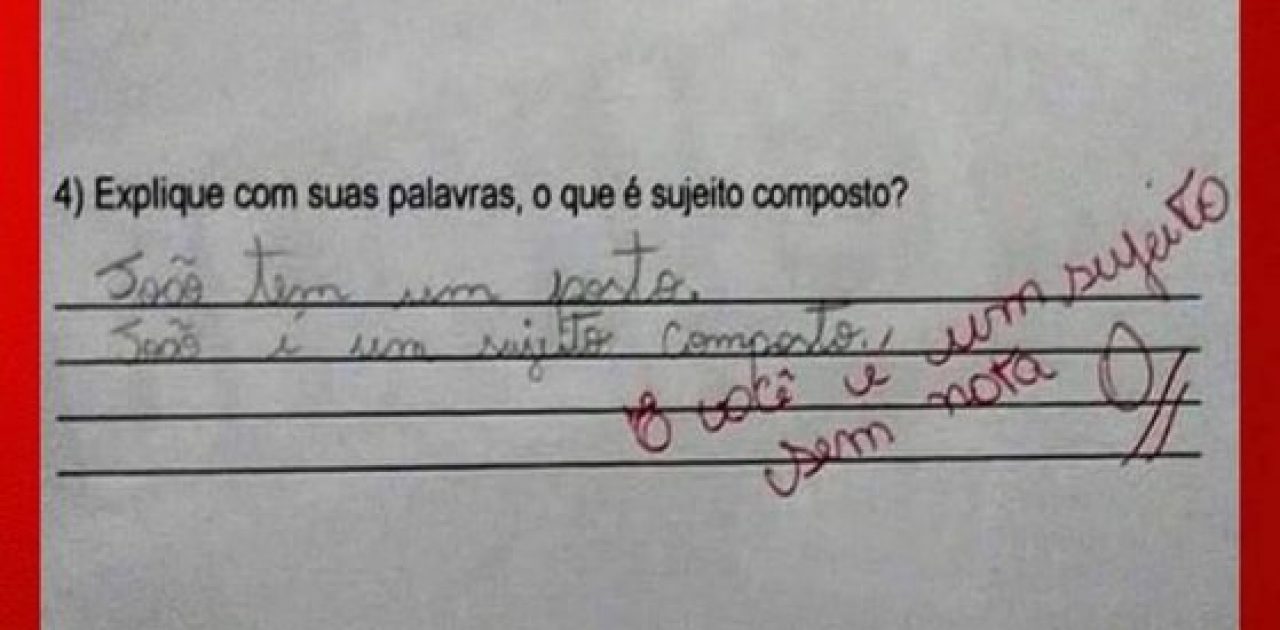 4) Explique com suas palavras, o que é sujeito composto?
João tem um posto.
João é um sujeito composto.
E você é um sujeito
sem nota 0//